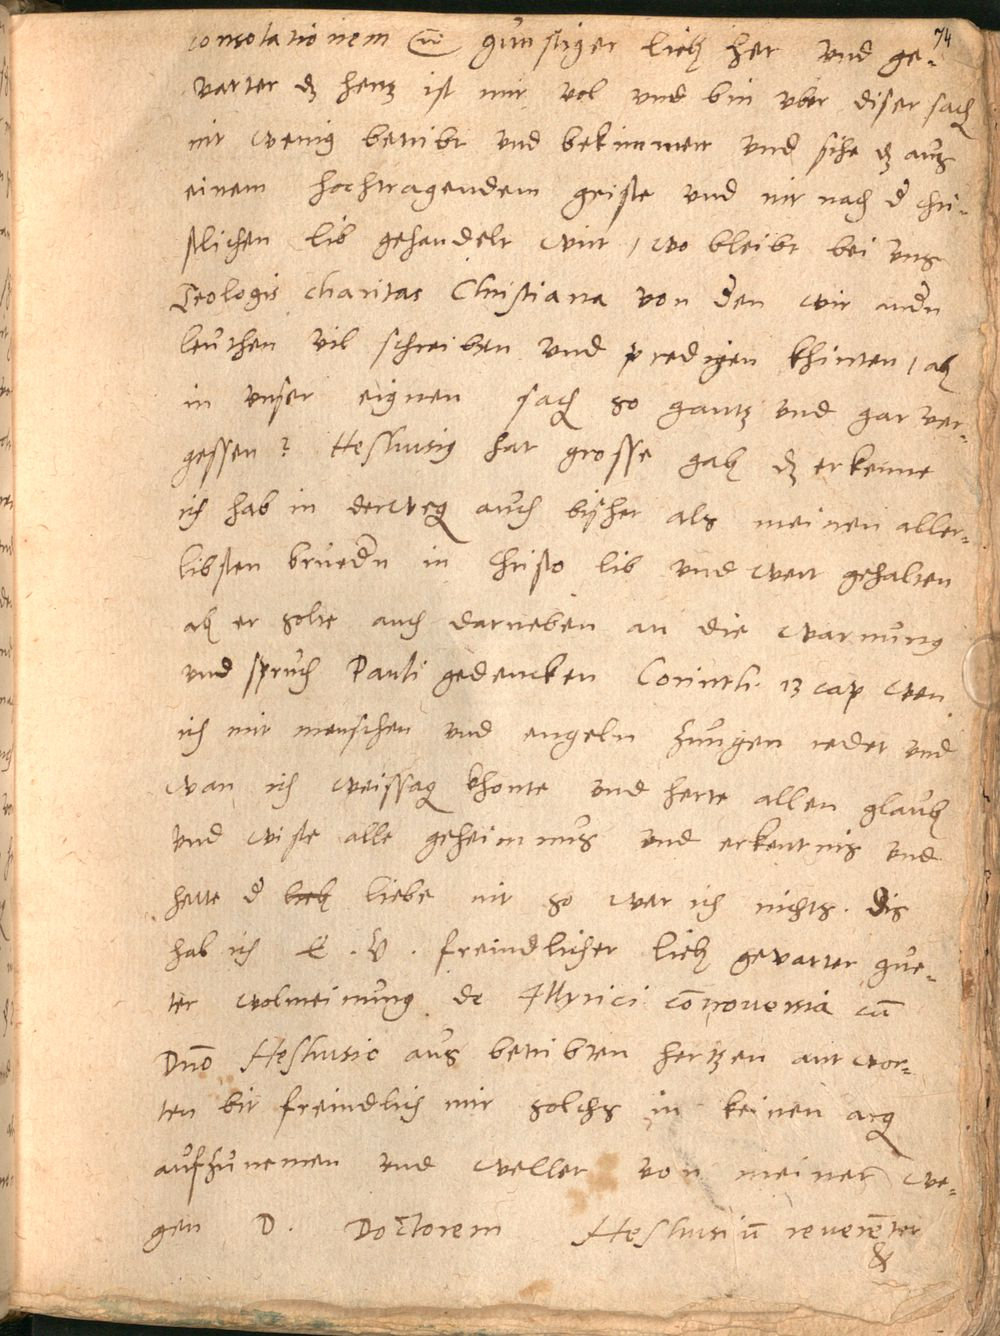 74
consolationem etc. günstiger lieb her vnd ge-
vatter dz hertz ist mir vol vnd bin vber diser sach
nit wenig betribt vnd bekimmert vnd sihe dz aus
einem hochtragendem geiste vnd nit nach d chri-
stlichen lib gehandelt wirt, wo bleibt bei vns
Teologis charitas Christiana von den wir andn
leuthen vil schreiben vnd predigen khinten, ab
in vnser eignen sach so gantz vnd gar ver-
gessen? Heshusig hat grosse gab dz erkenne
ich hab in derweg auch bisher als meinen aller-
libsten bruedn in Christo lib vnd wert gehalten
ab er solte auch darneben an die warnung
vnd spruch Pauli gedencken Corinth 13 cap wen
ich mit menschen vnd engeln zungen redet vnd
wan ich weissag khonte vnd hette allen glaub
vnd wiste alle geheimnus vnd erkentnis vnd
hette d lieb liebe nit so wer ich nichts. dis
hab ich E. V. freindlicher lieb gevatter gue-
ter wolmeinung de Illyrici cōtrouersia cū
Dno Heshusio aus betribten hertzen antwor-
ten bit freindlich mir solchs in keinen arg
aufzunemen vnd wellet von meinet we-
gen D. Doctorem Heshusiū reuerēter
&